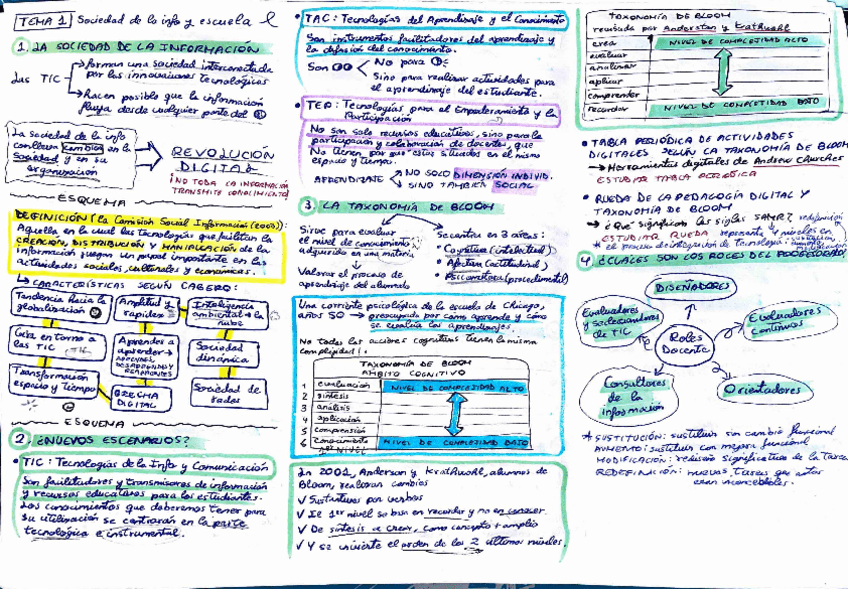 TEMA 1 Sociedad de la info y escuela
1. LA SOCIEDAD DE LA INFORMACIÓN
Las TIC
forman una sociedad interconectada
por las innovaciones tecnológicas
Hacen posible que la información
fluya desde cualquier parte del
La sociedad de la info
conlleva cambios en la
sociedad y en su
organización
REVOLUCIÓN
DIGITAL
¡NO TODA LA INFORMACIÓN
TRANSMITE CONOCIMIENTO!
ESQUEMA
DEFINICIÓN (la Comisión Social Información (2003)):
Aquella en la cual las tecnologías que facilitan la
CREACIÓN, DISTRIBUCIÓN y MANIPULACIÓN de la
información juegan un papel importante en las
actividades sociales, culturales y económicas.
CARACTERÍSTICAS SEGÚN CABERO:
Tendencia hacia la
globalización
Amplitud y
rapidez
Inteligencia
ambiental → la
nube
Gira en torno a
las TIC
Aprender a
aprender →
APRENDER,
DESAPRENDER Y
REAPRENDER
Sociedad
dinámica
Transformación
espacio y tiempo
BRECHA
DIGITAL
Sociedad de
redes
ESQUEMA
2. ¿NUEVOS ESCENARIOS?
• TIC: Tecnologías de la Info y Comunicación
Son facilitadores y transmisores de información
y recursos educativos para los estudiantes.
Los conocimientos que deberemos tener para
su utilización se centrarán en la parte
tecnológica e instrumental.
• TAC: Tecnologías del Aprendizaje y el Conocimiento
Son instrumentos facilitadores del aprendizaje y
la difusión del conocimiento.
Son
No para
Sino para realizar actividades para
el aprendizaje del estudiante.
• TEP: Tecnologías para el Empoderamiento y la
Participación
No son solo recursos educativos, sino para la
participación y colaboración de docentes, que
No tienen por qué estar situados en el mismo
espacio y tiempo.
APRENDIZAJE
NO SOLO DIMENSIÓN INDIVID.
SINO TAMBIÉN SOCIAL
3 LA TAXONOMÍA DE BLOOM
Sirve para evaluar
el nivel de conocimiento
adquirido en una materia
Valorar el proceso de
aprendizaje del alumnado
Se centra en 3 áreas:
• Cognitiva (intelectual)
• Afectiva (actitudinal)
• Psicomotora (procedimental)
Una corriente psicológica de la escuela de Chicago,
años 50 → preocupada por cómo aprende y cómo
se evalúa los aprendizajes.
No todas las acciones cognitivas tienen la misma
complejidad!:
TAXONOMÍA DE BLOOM
ÁMBITO COGNITIVO
1 evaluación NIVEL DE COMPLEJIDAD ALTO
2 síntesis
3 análisis
4 aplicación
5 comprensión
6 conocimiento NIVEL DE COMPLEJIDAD BAJO
1er NIVEL
In 2001, Anderson y Krathwohl, alumnos de
Bloom, realizan cambios
✓ Sustantivos por verbos
✓ El 1er nivel se basa en recordar y no en conocer.
✓ De síntesis a crear, como concepto + amplio
✓ Y se invierte el orden de los 2 últimos niveles.
TAXONOMÍA DE BLOOM
revisada por Anderson y Krathwohl
crear NIVEL DE COMPLEJIDAD ALTO
evaluar
analizar
aplicar
comprender
recordar NIVEL DE COMPLEJIDAD BAJO
• TABLA PERIÓDICA DE ACTIVIDADES
DIGITALES SEGÚN LA TAXONOMÍA DE BLOOM
→ Herramientas digitales de Andrew Churches
ESTUDIAR TABLA PERIÓDICA
• RUEDA DE LA PEDAGOGÍA DIGITAL Y
TAXONOMÍA DE BLOOM
→ ¿Qué significan las siglas SAMR? redefinición
ESTUDIAR RUEDA representa 4 niveles en
el proceso de integración de tecnología: sustitución, aumento, modificación
4. ¿CUÁLES SON LOS ROLES DEL PROFESORADO?
DISEÑADORES
Evaluadores
y seleccionadores
de TIC
Evaluadores
Continuos
Roles
Docente
Consultores
de la
información
Orientadores
* SUSTITUCIÓN: sustituir sin cambio funcional
AUMENTO: sustituir con mejora funcional
MODIFICACIÓN: rediseño significativo de la tarea
REDEFINICIÓN: nuevas tareas que antes
eran inconcebibles.